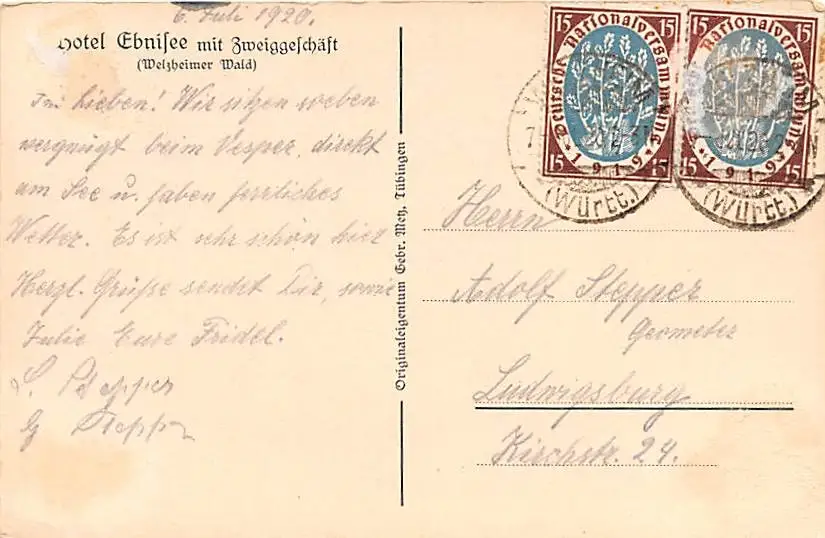 6. Juli 1920.
Hotel Ebnisee mit Zweiggeschäft
(Welzheimer Wald)
Ihr Lieben! Wir sitzen soeben
vergnügt beim Vesper, direkt
am See u. haben herrliches
Wetter. Es ist sehr schön hier
Herzl. Grüße sendet Dir, sowie
Julie Eure Fridel.
Stepper
Originaleigentum Gebr. Metz, Tübingen
15 15
Deutsche Nationalversammlung
1919
15 15
15 15
Deutsche Nationalversammlung
1919
15 15
(Württ.)
(Württ.)
Herrn
Adolf Stepper
Geometer
Ludwigsburg
Kirchstr. 24.